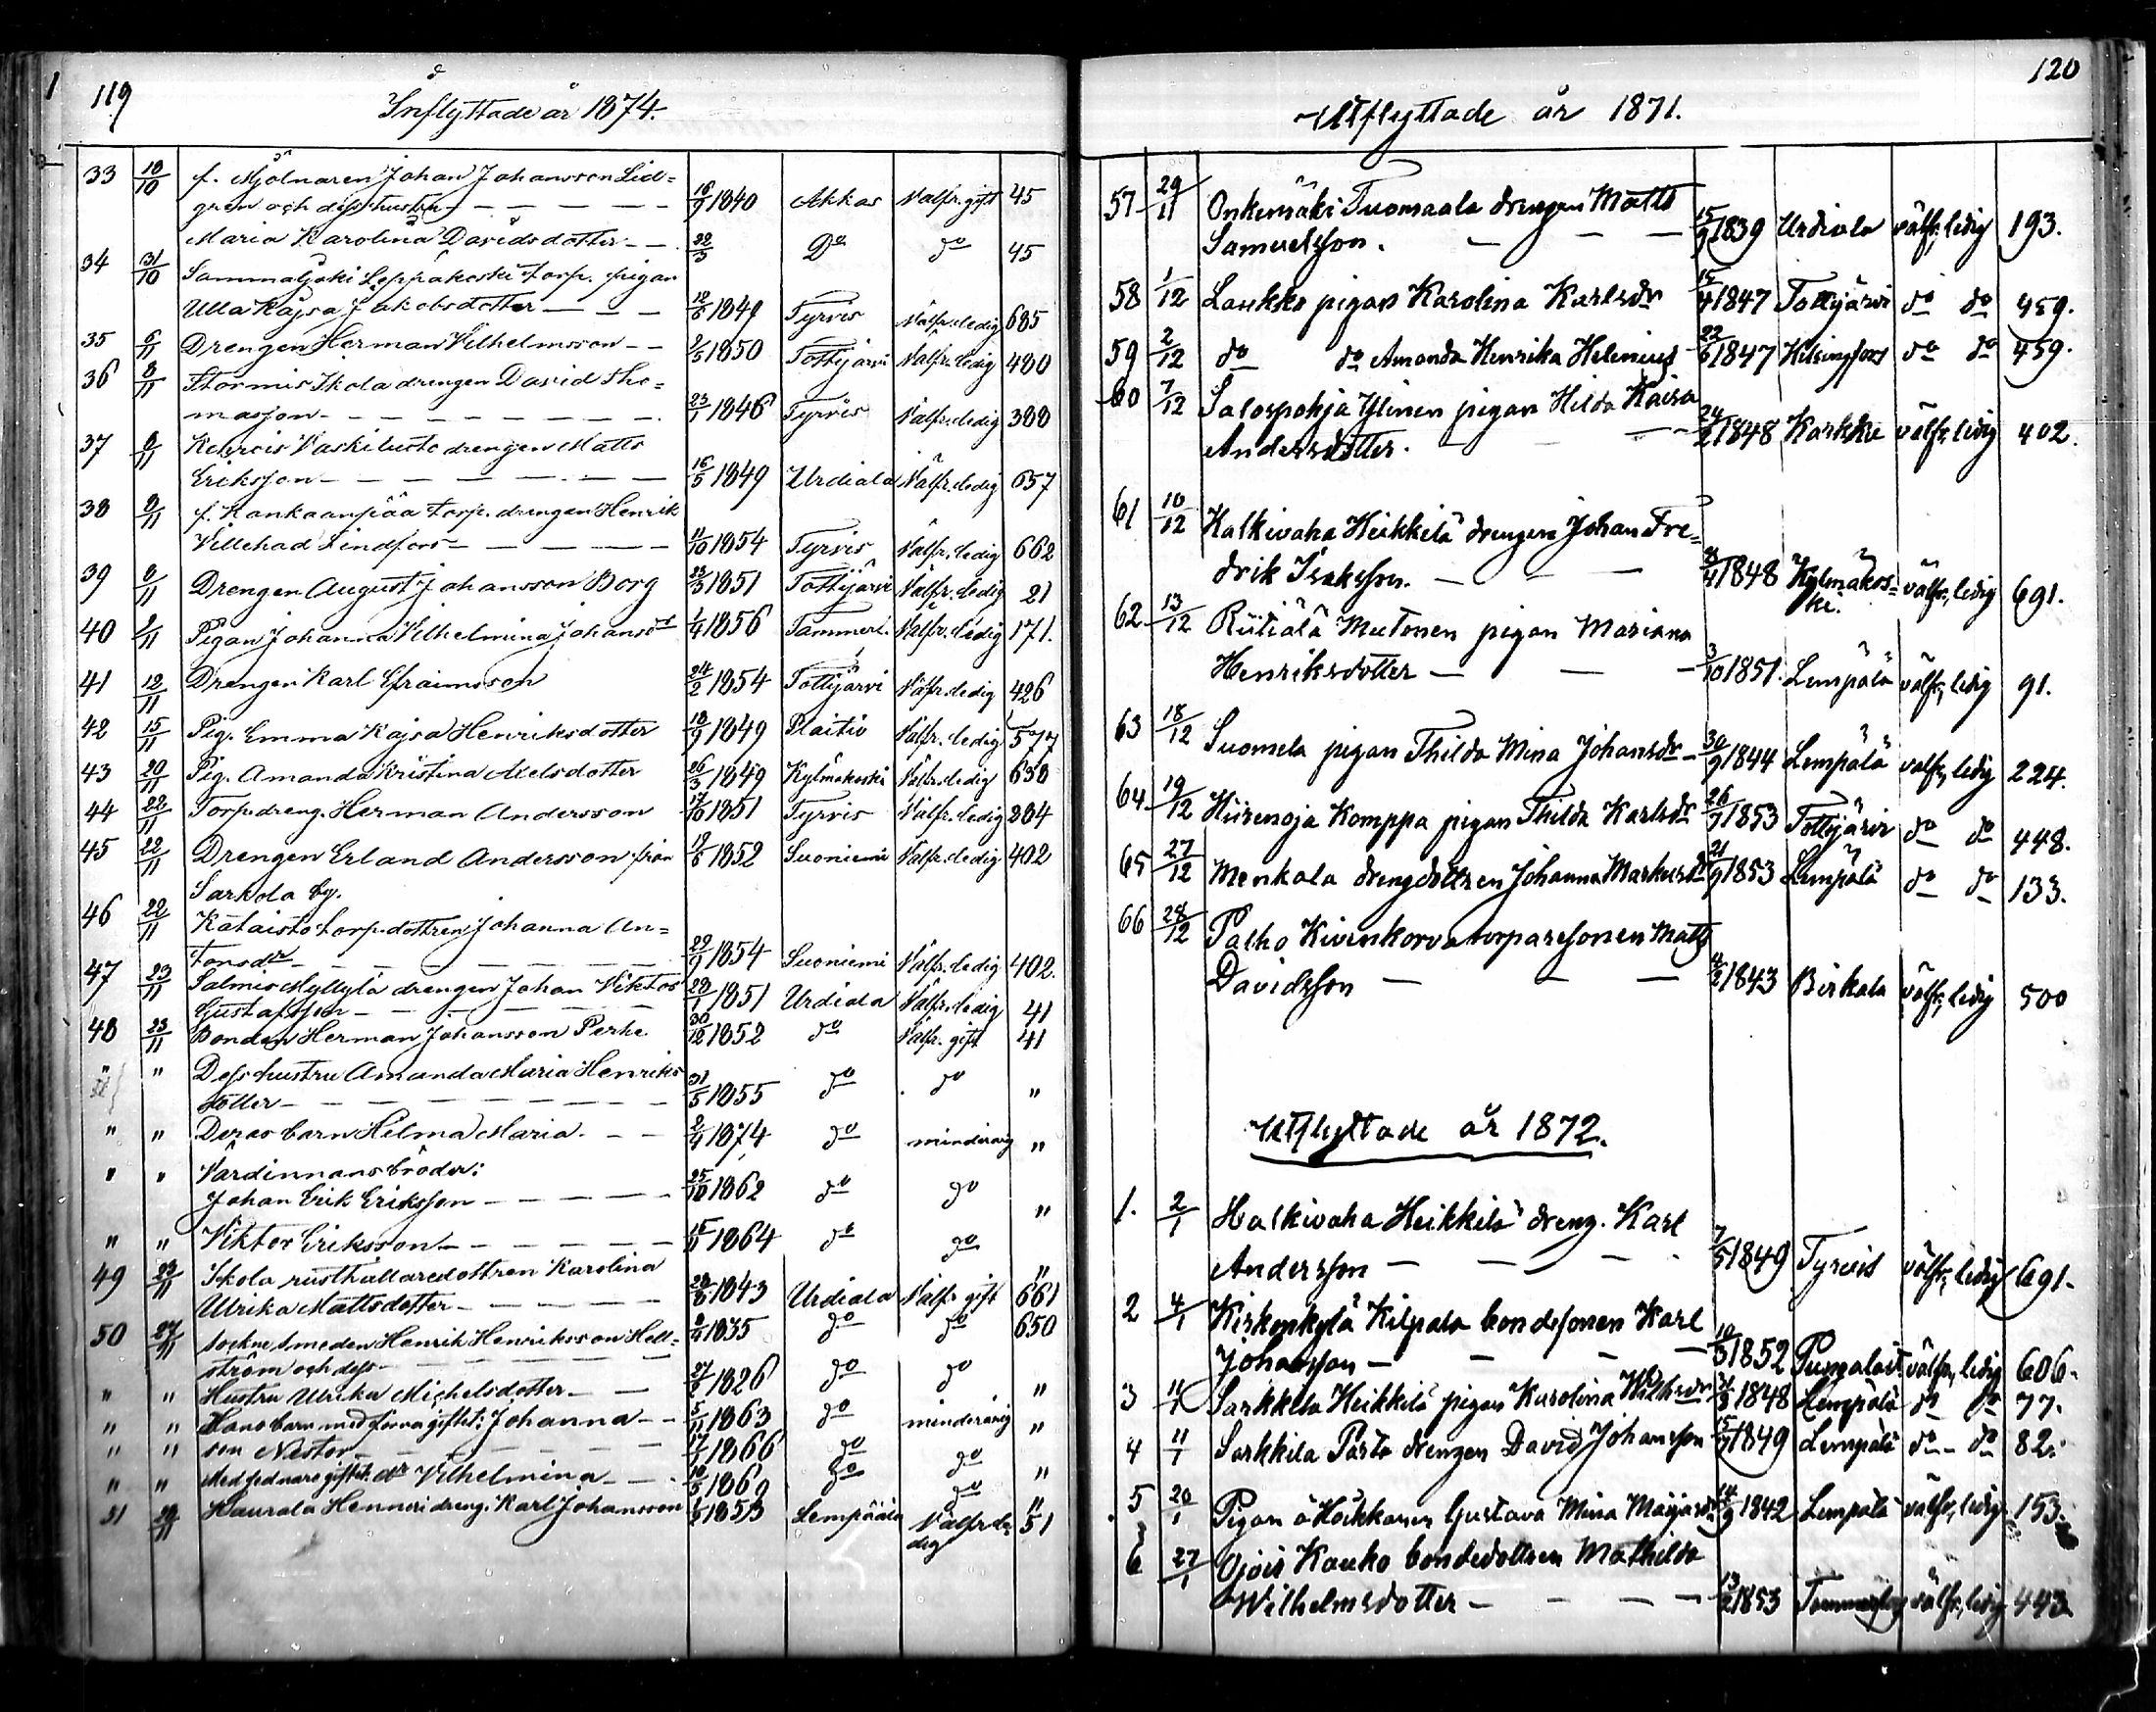 119
Inflyttade år 1874.
33 10/10 f. Mjölnaren Johan Johansson Lid=
gren och dess hustru — 16/9 1840 Akkas Välfr. gift 45
Maria Karolina Davidsdotter — 22/3 Do do 45
34 31/10 Sammaljoki Leppäkoski torp. pigan
Ulla Kajsa Jakobsdotter — 1849 Tyrvis Välfr. ledig 685
35 6/11 Drengen Herman Vilhelmsson — 2/5 1850 Tottijärvi Välfr. ledig 480
36 8/11 Stormis Skola drengen David Tho=
masson — 23/1 1846 Tyrvis Välfr. ledig 388
37 8/11 Vaskiluoto drengen Matts
Eriksson — 16/5 1849 Urdiala Välfr. ledig 657
38 8/11 f. Kankaanpää torp. drengen Henrik
Villehad Lindfors — 11/10 1854 Tyrvis Välfr. ledig 662
39 8/11 Drengen August Johansson Borg 23/3 1851 Tottijärvi Välfr. ledig 21
40 9/11 Pigan Johanna Vilhelmina Johansdr 1/4 1856 Tammerf. Välfr. ledig 171.
41 12/11 Drengen Karl Efraimsson 24/2 1854 Tottijärvi Välfr. ledig 426
42 15/11 Pig. Emma Kajsa Henriksdotter 18/9 1849 Plaitis Välfr. ledig 577
43 20/11 Pig. Amanda Kristina Axelsdotter 26/3 1849 Kylmäkoski Välfr. ledig 638
44 22/11 Torp. dreng. Herman Andersson 17/10 1851 Tyrvis Välfr. ledig 284
45 22/11 Drengen Erland Andersson från 1852 Suoniemi Välfr. ledig 402
Sarkola by.
46 22/11 Kataisto torp. dottren Johanna An=
tonsdr — 22/9 1854 Suoniemi Välfr. ledig 402.
47 23/11 Salmis Myllylä drengen Johan Viktor 28/1 1851 Urdiala Välfr. ledig 41
Gustafsson —
48 23/11 Bonden Herman Johansson Perhe 30/12 1852 do Välfr. gift 41
" " Dess hustru Amanda Maria Henriks
dotter — 31/5 1855 do do "
" " Deras barn Hilma Maria. — 2/4 1874 do minderårig "
" " Värdinnans bröder:
Johan Erik Eriksson — 25/10 1862 do do "
" " Viktor Eriksson — 15/11 1864 do do "
49 23/11 Skola rusthållaredottren Karolina
Ulrika Mattsdotter — 1843 Urdiala Välfr. gift 661
50 27/11 sockne smeden Henrik Henriksson Hell= 1835 do do 650
ström och dess —
" " Hustru Ulrika Michelsdotter — 1826 do do "
" " Hans barn med förra giftet: Johanna — 5/11 1863 do minderårig "
" " son Nestor — 1866 do do
" " Med sednare giftet dr Vilhelmina — 1869 do do "
51 Haurala Henneri dreng. Karl Johansson 1853 Lempäälä Välfr. le= 51
dig

120
Utflyttade år 1871.
57 29/11 Onkemäki Tuomaala drengen Matts
Samuelsson. — 15/9 1839 Urdiala välfr, ledig 193.
58 1/12 Laukko pigan Karolina Karlsdr 15/4 1847 Tottijärvi do do 459.
59 2/12 do do Amanda Henrika Helenius 22/6 1847 Helsingfors do do 459.
60 7/12 Salospohja Ylinen pigan Hilda Kaisa
Andersdotter. — 24/2 1848 Karkku välfr, ledig 402.
61 10/12 Halkivaha Heikkilä drengen Johan Fre=
drik Isaksson. — 1848 Kylmäkos= välfr, ledig 691.
ki.
62. 13/12 Riitiälä Mutonen pigan Mariana
Henriksdotter — 3/10 1851. Lempälä välfr, ledig 91.
63 18/12 Suomela pigan Thilda Mina Johansdr — 30/9 1844 Lempälä välfr, ledig 224.
64 19/12 Hiirenoja Komppa pigan Thilda Karlsdr 1853 Tottijärvi do do 448.
65 27/12 Menkala drengdottren Johanna Markusdr 21/9 1853 Lempälä do do 133.
66 28/12 Palho Kivenkorva torparesonen Matts
Davidsson — 1843 Birkala välfr, ledig 500

Utflyttade år 1872.
1. 2/1 Halkivaha Heikkilä dreng. Karl
Andersson — 7/5 1849 Tyrvis välfr, ledig 691.
2 4/1 Kirkonkylä Kilpala bondesonen Karl
Johansson — 1852 Pungalait. välfr, ledig 606.
3 11/1 Sarkkila Heikkilä pigan Karolina Wilhdr 1848 Lempälä do do 77.
4 11/1 Sarkkila Pärto drengen David Johansson 1849 Lempälä do do 82.
5 20/1 Pigan å Hakkanen Gustava Mina Maijasdr 1842 Lempälä välfr, ledig 153.
6 27/1 Ojois Kauko bondedottren Mathilda
Wilhelmsdotter — 13/2 1853 Tammerfors välfr, ledig 443.